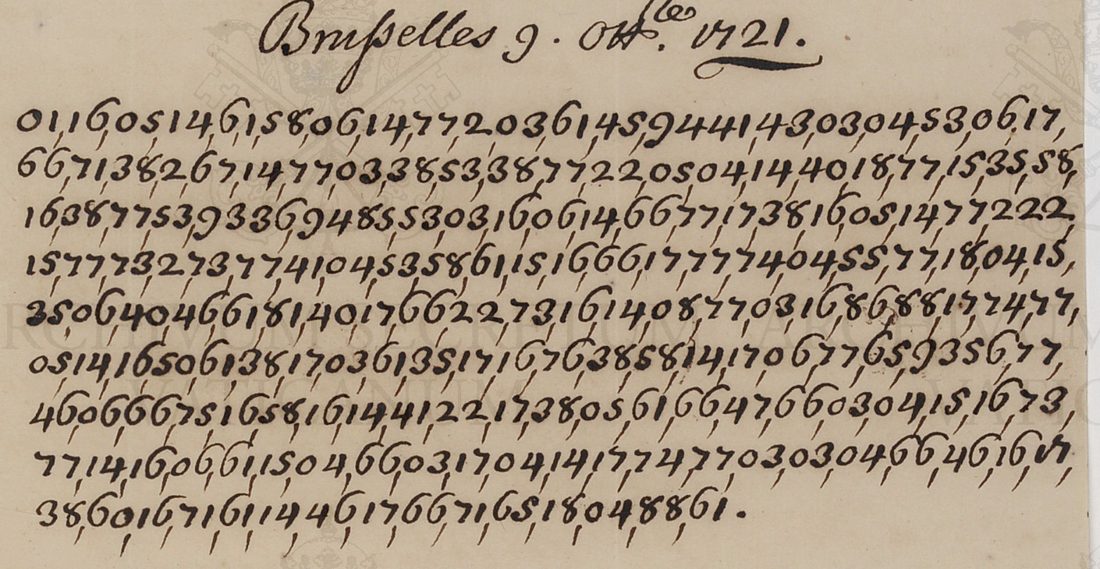 Bruxelles 9. Ott.bre 1721.
01,16,05,14,61,58,06,14,77,2,03,61,45,94,41,43,03,04,53,06,17,
66,71,38,2,67,14,77,03,38,53,38,77,2,2,05,04,14,40,18,77,15,35,58,
16,38,77,53,93,36,94,85,53,03,16,06,14,66,77,17,38,16,05,14,77,2,2,2,
15,77,73,2,73,77,41,04,53,58,61,15,16,66,17,77,74,04,55,77,18,04,15,
35,06,40,46,61,81,40,17,66,2,2,73,16,14,08,77,03,16,86,88,17,74,77,
05,14,16,50,61,38,17,03,61,35,17,16,76,38,58,14,17,06,77,65,93,56,77,
46,06,66,75,16,58,16,14,41,2,2,17,38,05,61,66,47,66,03,04,15,16,73,
77,14,16,06,61,15,04,66,03,17,04,14,17,74,77,03,03,04,66,46,16,17,
38,60,16,71,61,14,46,17,66,71,65,18,04,88,61.